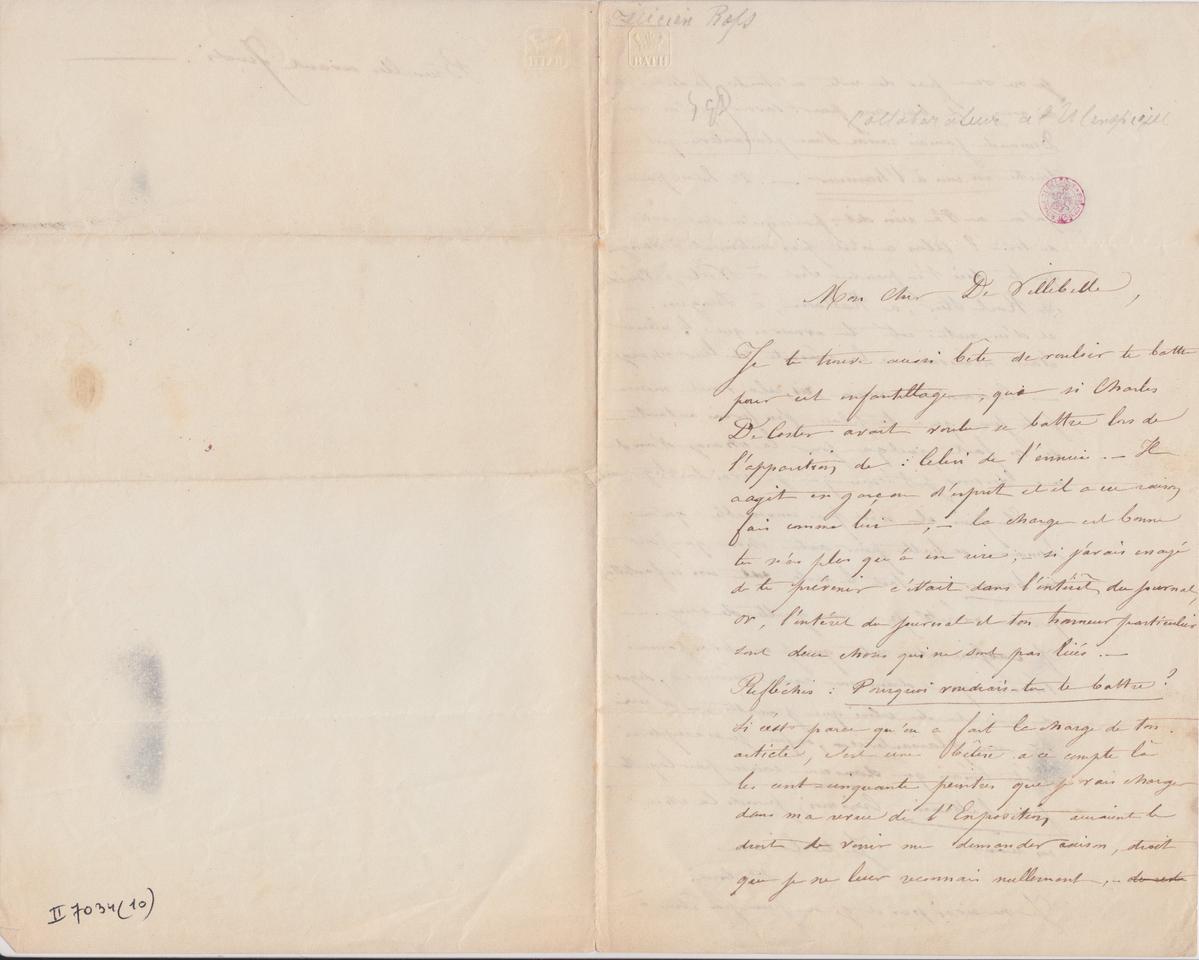 II 7034 (10)
Félicien Rops
BATH
Collaborateur à l'Ulenspiegel
Mon cher De Villebelle,
Je te trouve aussi bête de vouloir te battre
pour cet enfantillage, que si Charles
De Coster avait voulu se battre lors de
l'apparition de : Celui de l'ennuie. – Il
agit en garçon d'esprit et il a eu raison,
fais comme lui ; – la charge est bonne
tu n'as plus qu'à en rire, – si j'avais
de te prévenir c'était dans l'intérêt du journal,
or, l'intérêt du journal et ton honneur particulier
sont deux choses qui ne sont pas liées. –
Refléchis : Pourquoi voudrais-tu te battre ?
Si c'est parce qu'on a fait la charge de ton
article, c'est une bêtise. a ce compte là
les cent-cinquante peintres que je vais charger
dans ma revue de l'Exposition, auraient le
droit de venir me demander raison, droit
que je ne leur reconnais nullement, –